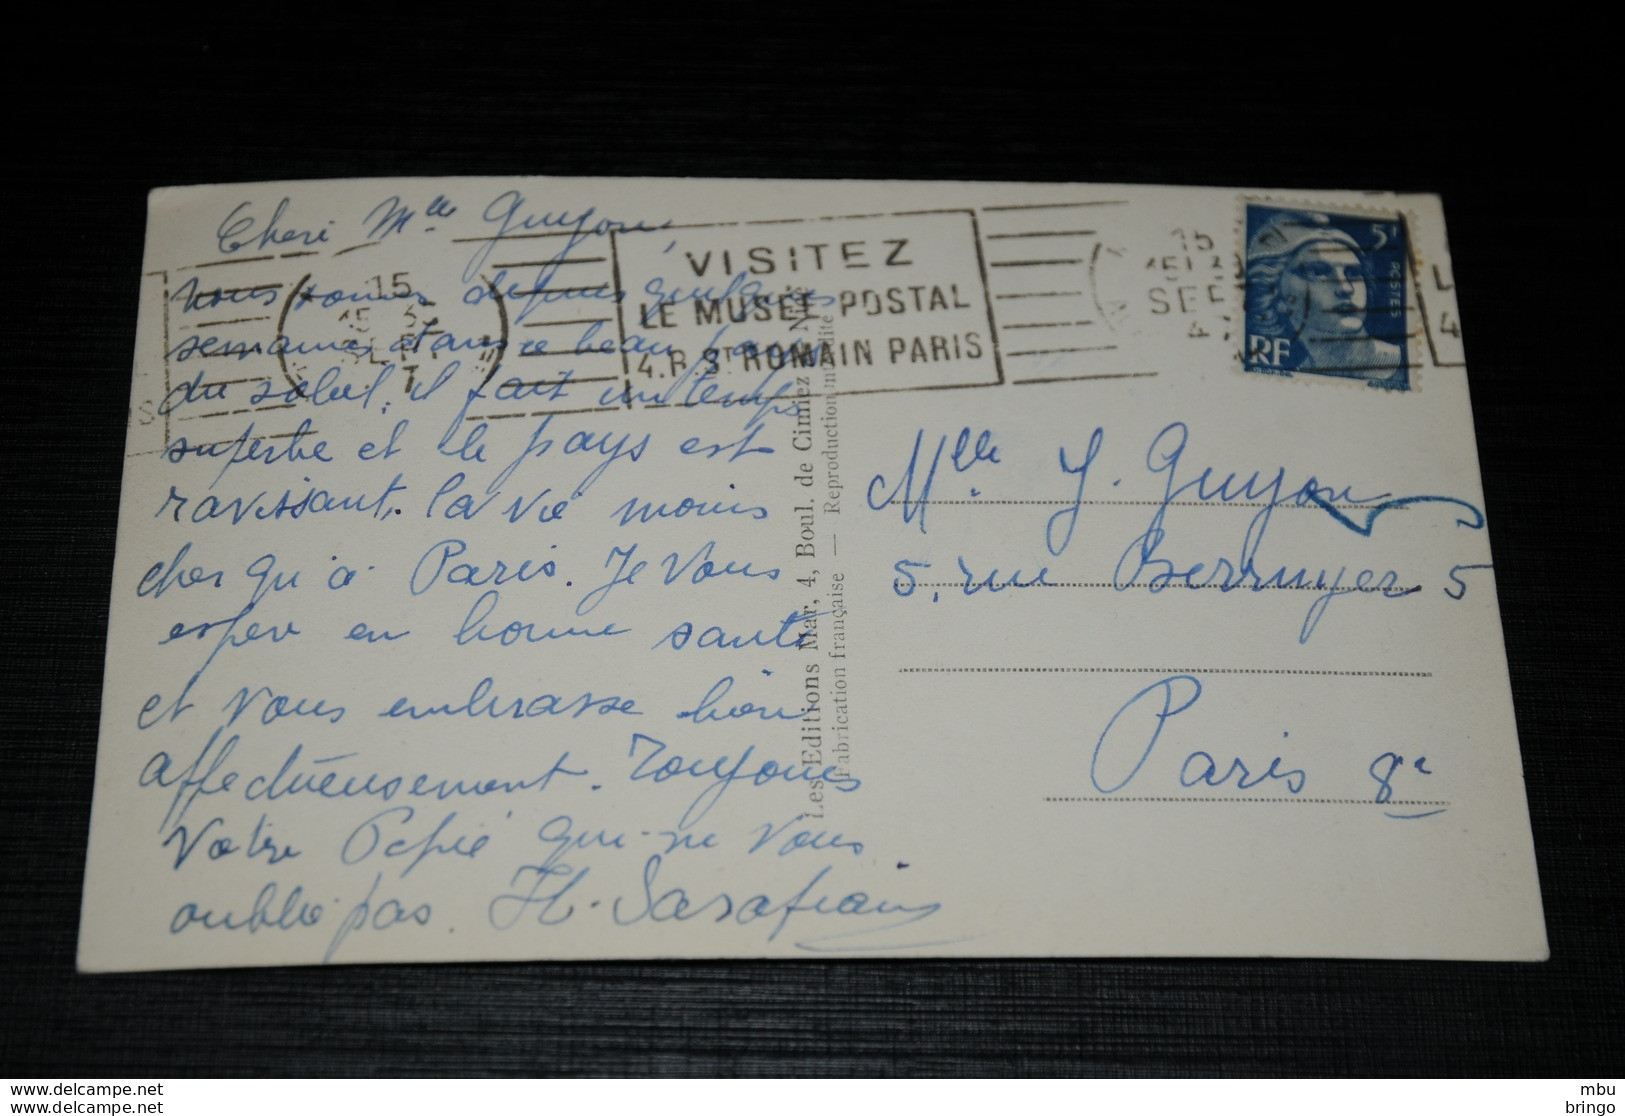 Cheri Mlle Guyon
Nous sommes depuis quelques
semaines dans ce beau pays
du soleil, il fait un temps
superbe et le pays est
ravissant, la vie moins
cher qu'à Paris. Je vous
espere en bonne santé
et vous embrasse bien
affectueusement. Toujours
Votre Pepie qui ne vous
oublie pas. H. Sarafian
VISITEZ
LE MUSÉE POSTAL
4.R.ST ROMAIN PARIS
15
SEPT
15
SEPT
47
5F
POSTES
RF
Les Editions Mar, 4, Boul. de Cimiez, Nice
Fabrication française — Reproduction interdite
Mlle Y. Guyon
5, rue Berruyer 5
Paris 8e
www.delcampe.net
www.delcampe.net
mbu
bringo